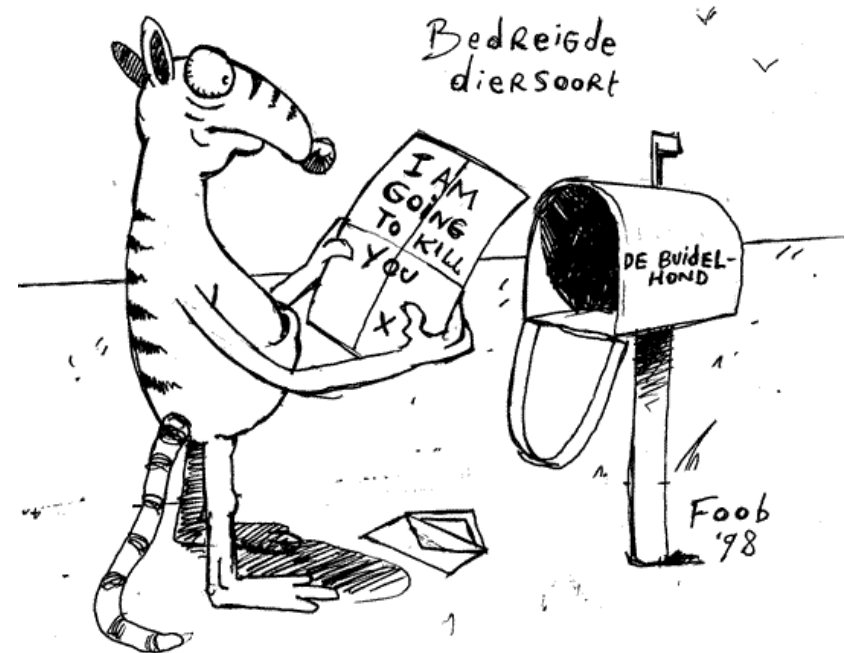 Bedreigde
diersoort
I AM
GOING
TO KILL
YOU
X
DE BUIDEL-
HOND
Foob
'98